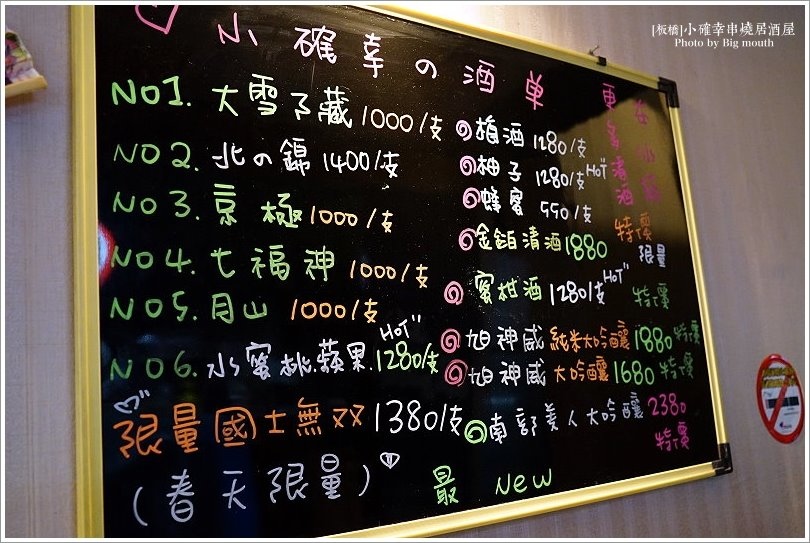 [板橋]小確幸串燒居酒屋
Photo by Big mouth
小確幸の酒单
NO1. 大雪了藏 1000/支
NO2. 北の錦 1400/支
NO3. 京極 1000/支
NO4. 七福神 1000/支
NO5. 月山 1000/支
NO6. 水蜜桃.蘋果. 1280/支 HOT
限量國士無双 1380/支
(春天限量)
梅酒 1280/支
柚子 1280/支 HOT
蜂蜜 550/支
金鉑清酒 1880 特價 限量
蜜柑酒 1280/支 HOT 特價
旭神威 純米大吟釀 1880 特價
旭神威 大吟釀 1680 特價
南部美人大吟釀 2380 特價
最 NEW
更多清酒